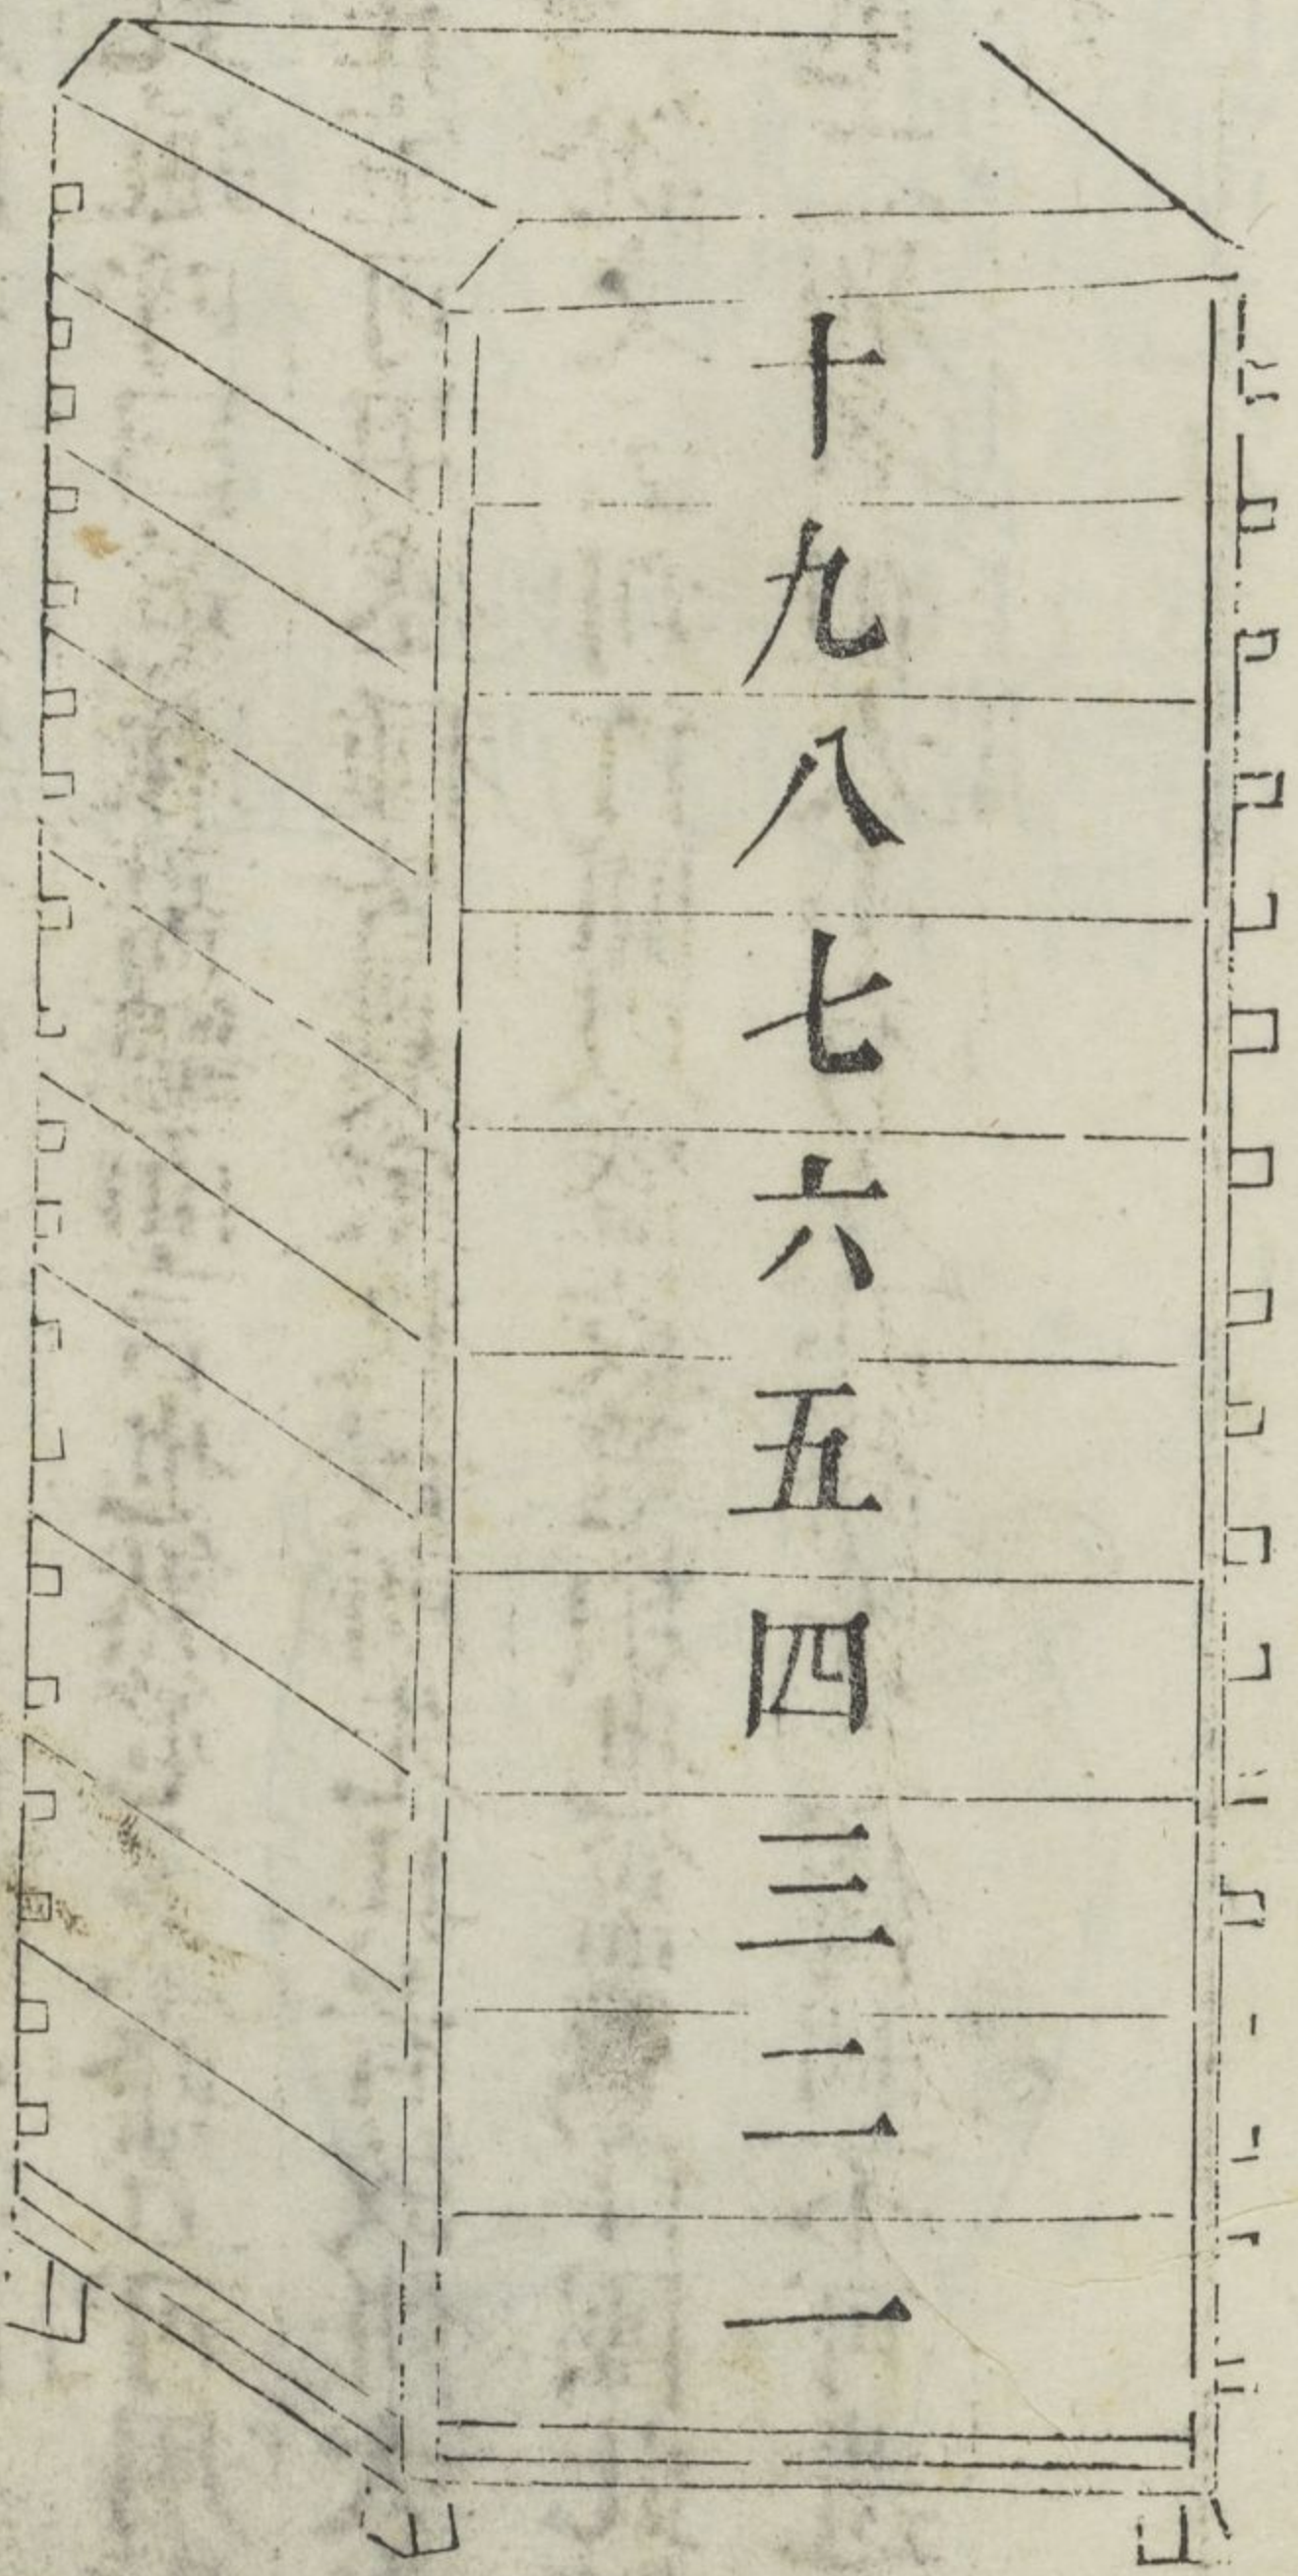 十
九
八
七
六
五
四
三
二
一